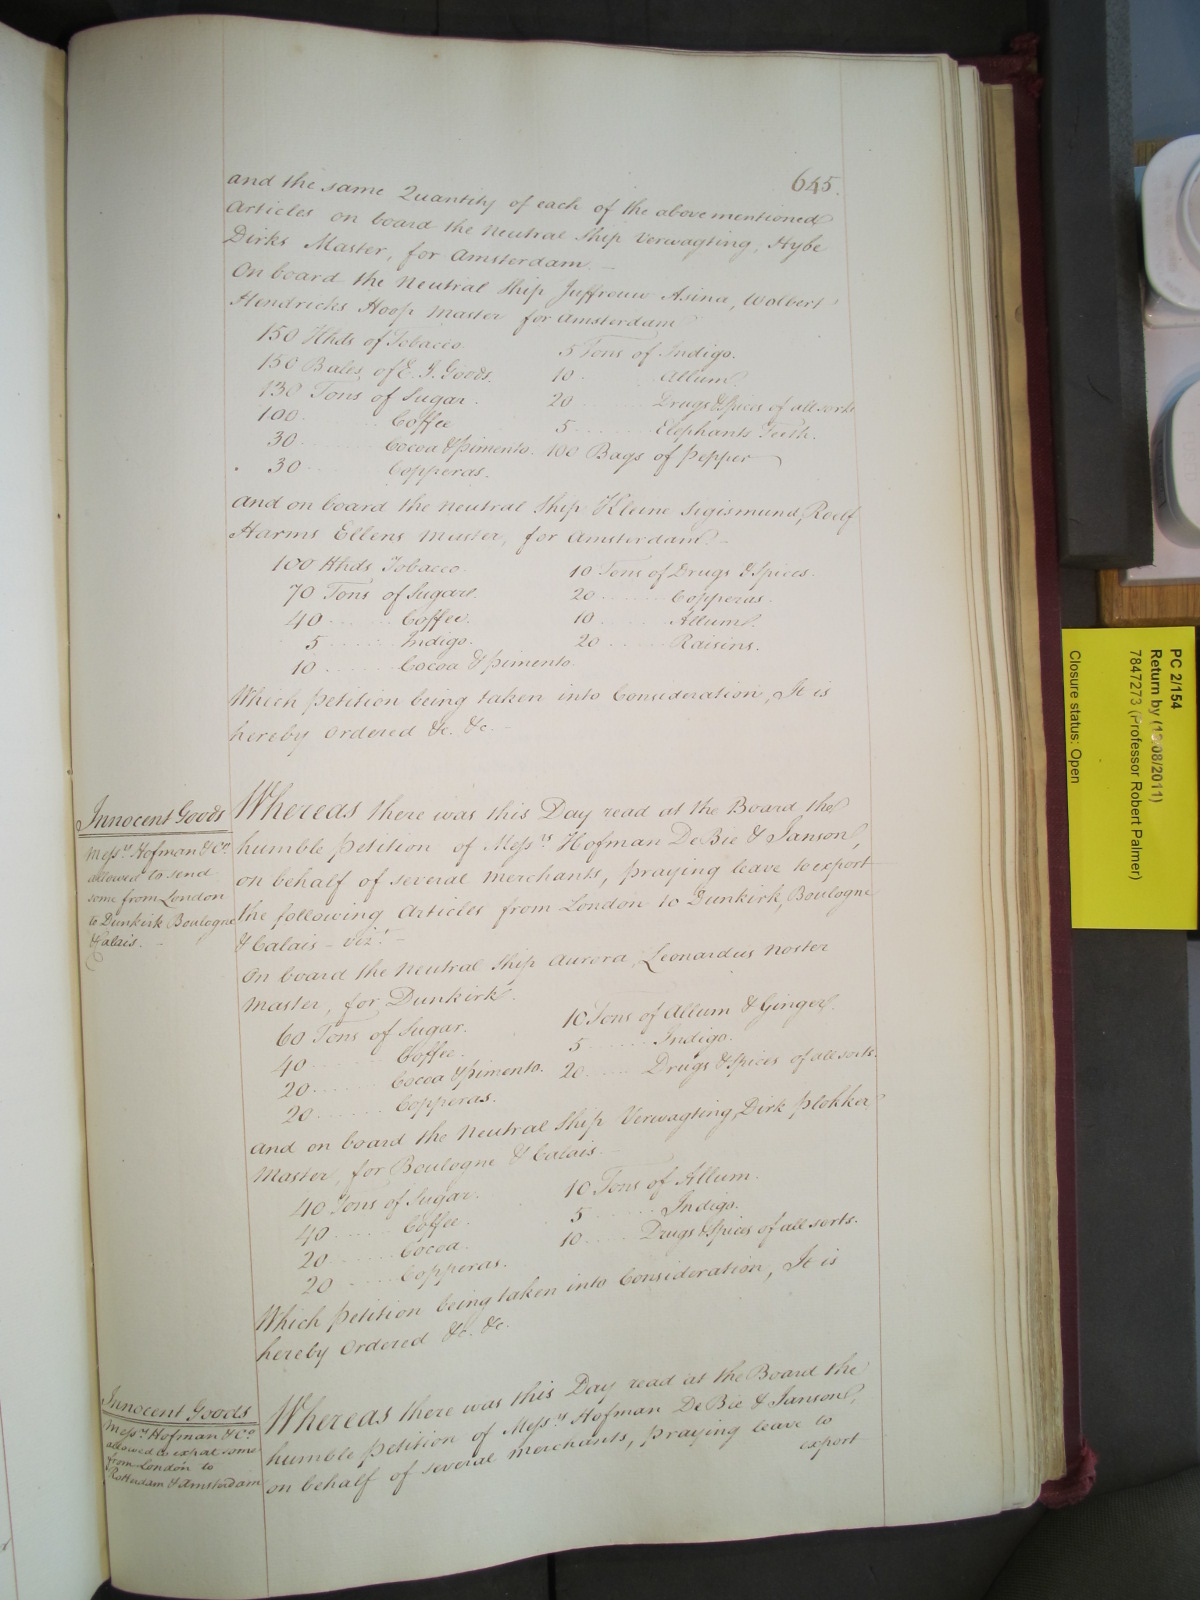 645.
and the same Quantity of each of the abovementioned
Articles on board the Neutral Ship Verwagting, Hybe
Dirks Master, for Amsterdam. —
On board the Neutral Ship Juffrouw Asina, Wolbert
Hendricks Hoop Master for Amsterdam
150 Hhds of Tobacco. 5 Tons of Indigo.
150 Bales of E. I. Goods. 10 ..... Allum.
130 Tons of Sugar. 20 ..... Drugs & Spices of all sorts
100 ..... Coffee 5 ..... Elephants Teeth.
30 ..... Cocoa & Pimento. 100 Bags of Pepper
30 ..... Copperas.
And on board the Neutral Ship Kleine Sigismund, Roelf
Harms Ellens Master, for Amsterdam. —
100 Hhds Tobacco. 10 Tons of Drugs & Spices.
70 Tons of Sugar. 20 ..... Copperas.
40 ..... Coffee. 10 ..... Allum.
5 ..... Indigo. 20 ..... Raisins.
10 ..... Cocoa & Pimento.
Which Petition being taken into Consideration, It is
hereby Ordered &c. &c. —
Innocent Goods
Messrs. Hofman & Co.
allowed to send
some from London
to Dunkirk Boulogne
& Calais. —
Whereas there was this Day read at the Board the
humble Petition of Messrs. Hofman De Bie & Janson,
on behalf of several Merchants, praying leave to export
the following Articles from London to Dunkirk, Boulogne
& Calais — vizt. —
On board the Neutral Ship Aurora, Leonardus Noster
Master, for Dunkirk.
60 Tons of Sugar. 10 Tons of Allum & Ginger.
40 ..... Coffee. 5 ..... Indigo.
20 ..... Cocoa & Pimento. 20 ..... Drugs & Spices of all sorts.
20 ..... Copperas.
And on board the Neutral Ship Verwagting, Dirk Plokker
Master, for Boulogne & Calais. —
40 Tons of Sugar. 10 Tons of Allum.
40 ..... Coffee. 5 ..... Indigo.
20 ..... Cocoa. 10 ..... Drugs & Spices of all sorts.
20 ..... Copperas.
Which Petition being taken into Consideration, It is
hereby Ordered &c. &c.
Innocent Goods
Messrs. Hofman & Co.
allowed to export some
from London to
Rotterdam & Amsterdam
Whereas there was this Day read at the Board the
humble Petition of Messrs. Hofman De Bie & Janson,
on behalf of several Merchants, praying leave to
export
PC 2/154
Return by (1 /08/2011)
7847273 (Professor Robert Palmer)
Closure status: Open